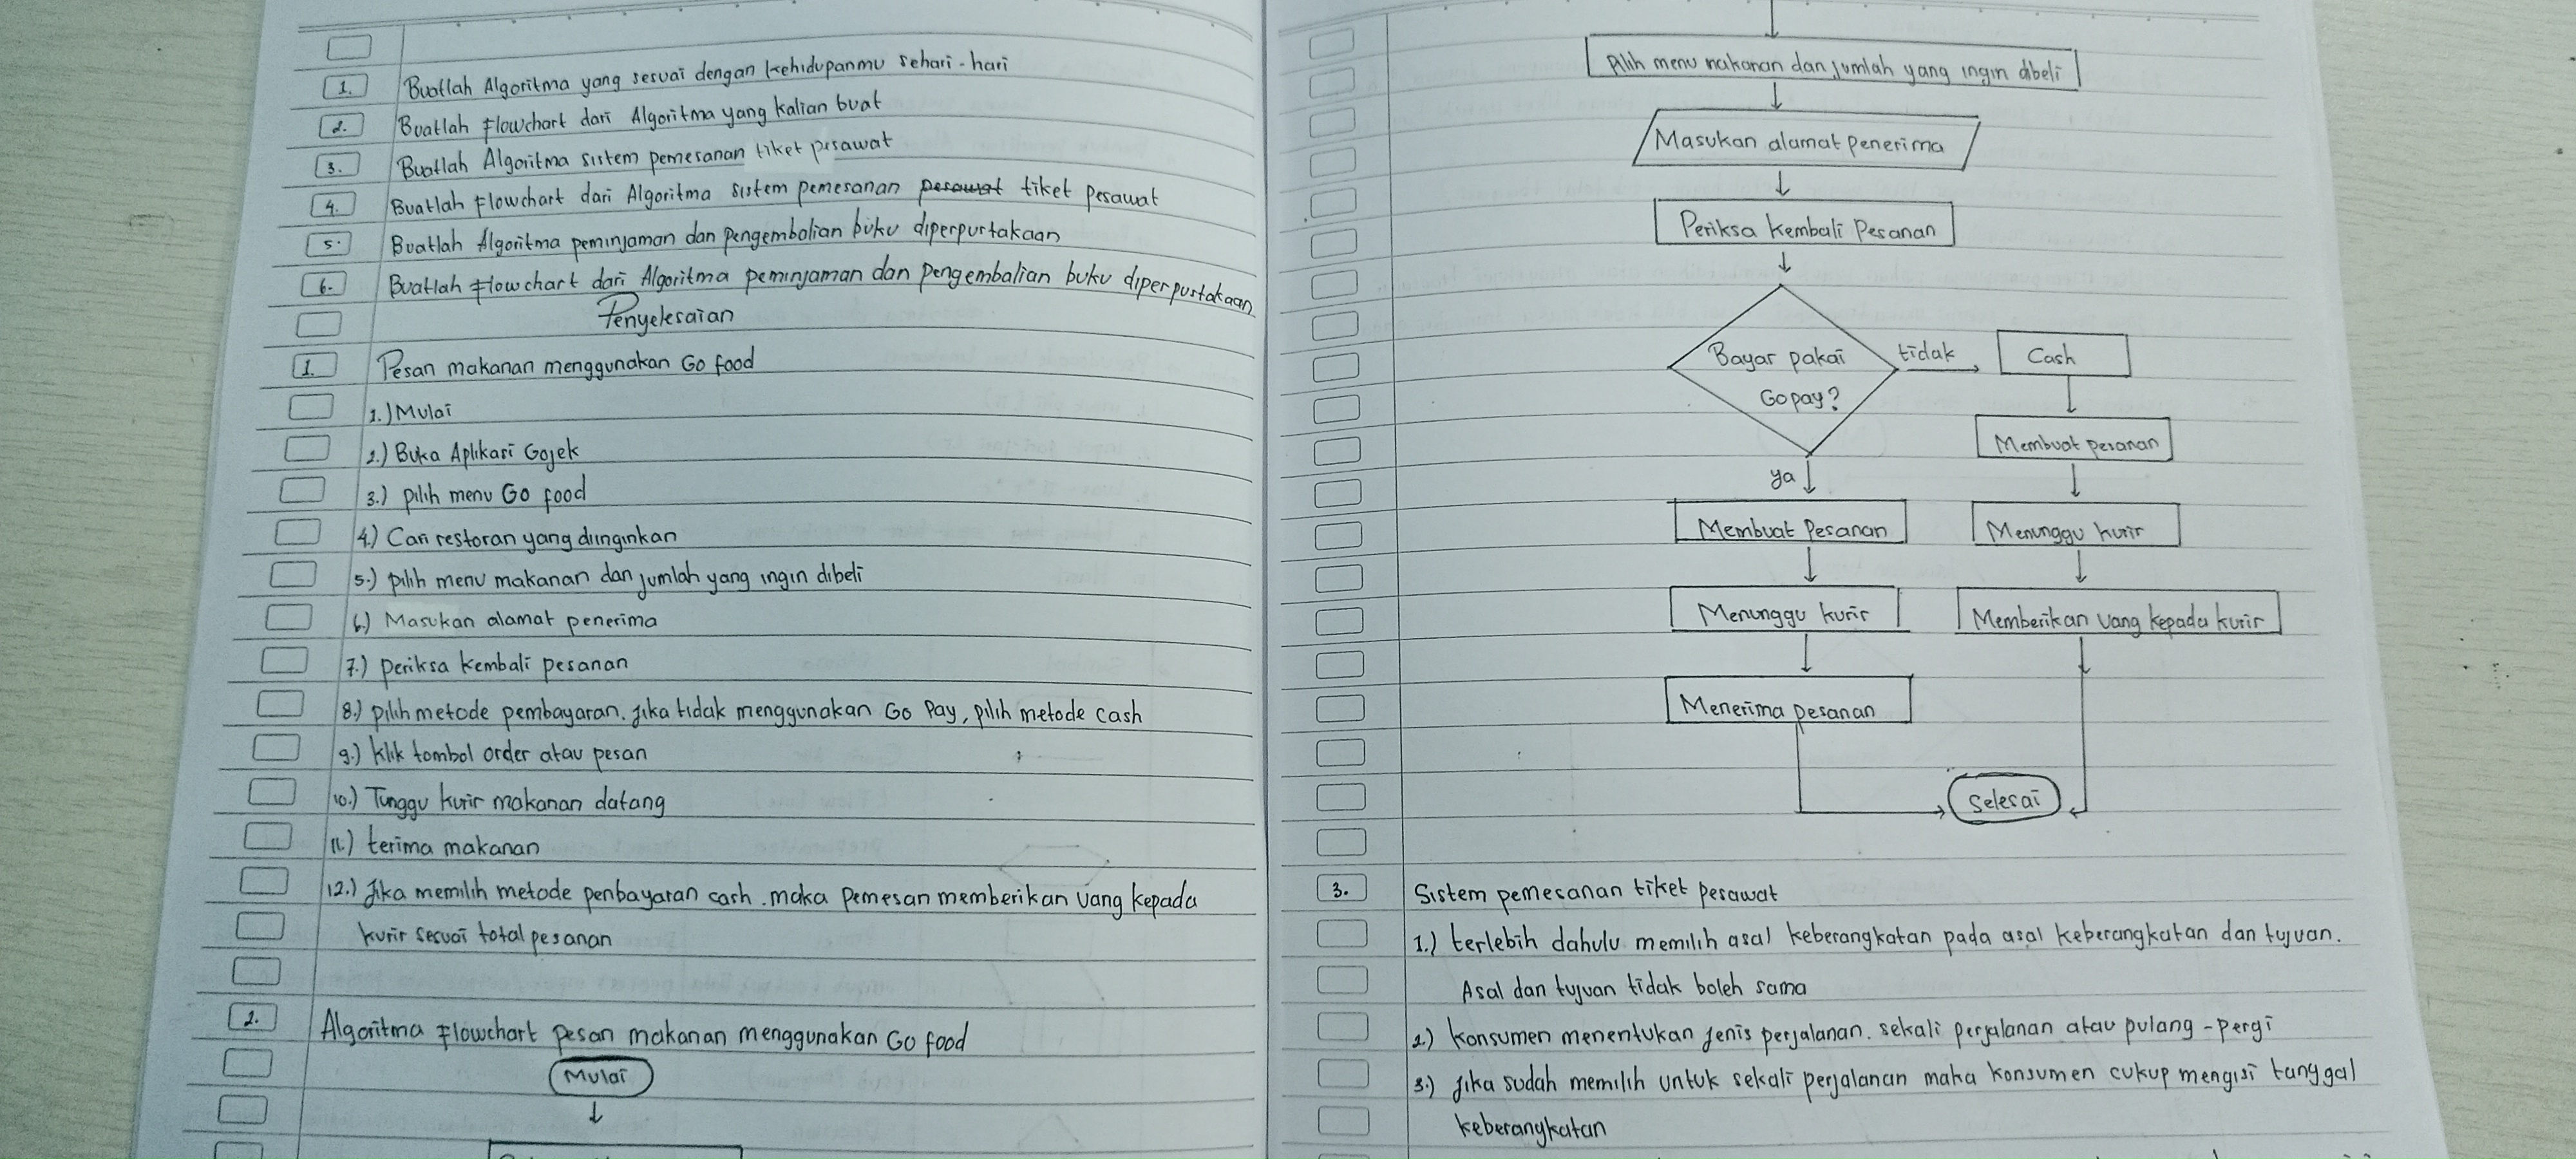 1. Buatlah Algoritma yang sesuai dengan kehidupanmu sehari-hari
2. Buatlah Flowchart dari Algoritma yang kalian buat
3. Buatlah Algoritma sistem pemesanan tiket pesawat
4. Buatlah Flowchart dari Algoritma sistem pemesanan pesawat tiket pesawat
5. Buatlah Algoritma peminjaman dan pengembalian buku diperpurtakaan
6. Buatlah Flowchart dari Algoritma peminjaman dan pengembalian buku diperpustakaan
Penyelesaian
1. Pesan makanan menggunakan Go food
1.) Mulai
2.) Buka Aplikasi Gojek
3.) pilih menu Go food
4.) Cari restoran yang diinginkan
5.) pilih menu makanan dan jumlah yang ingin dibeli
6.) Masukan alamat penerima
7.) periksa kembali pesanan
8.) pilih metode pembayaran. jika tidak menggunakan Go Pay, pilih metode cash
9.) klik tombol order atau pesan
10.) Tunggu kurir makanan datang
11.) terima makanan
12.) Jika memilih metode penbayaran cash. maka pemesan memberikan uang kepada
kurir sesuai total pesanan
2. Algoritma Flowchart pesan makanan menggunakan Go food
Mulai
Pilih menu makanan dan jumlah yang ingin dibeli
Masukan alamat penerima
Periksa kembali Pesanan
Bayar pakai
Gopay?
tidak
Cash
Membuat pesanan
ya
Membuat Pesanan
Menunggu kurir
Menunggu kurir
Memberikan uang kepada kurir
Menerima pesanan
Selesai
3. Sistem pemesanan tiket pesawat
1.) terlebih dahulu memilih asal keberangkatan pada asal keberangkatan dan tujuan.
Asal dan tujuan tidak boleh sama
2.) konsumen menentukan jenis perjalanan. sekali perjalanan atau pulang-pergi
3.) jika sudah memilih untuk sekali perjalanan maka konsumen cukup mengisi tanggal
keberangkatan